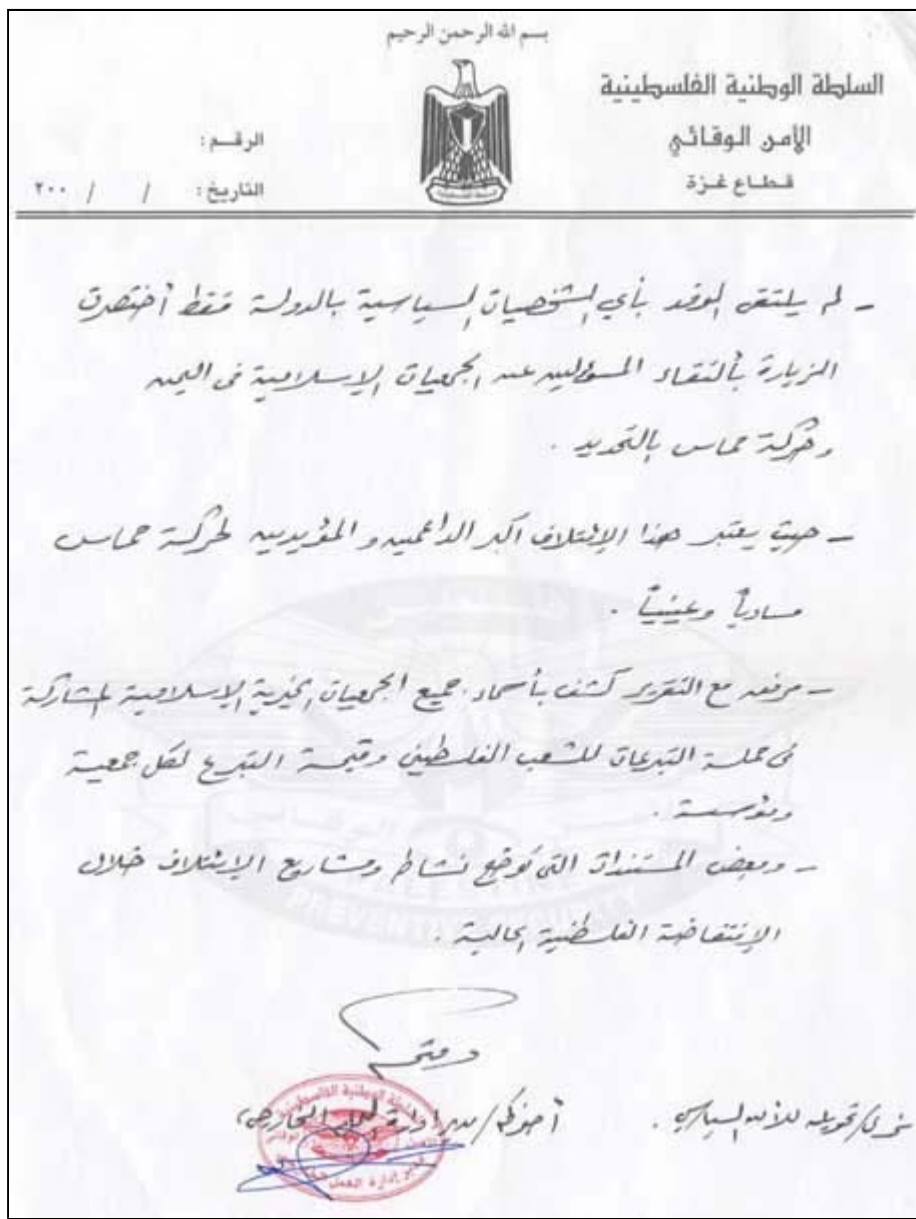 بسم الله الرحمن الرحيم
السلطة الوطنية الفلسطينية
الأمن الوقائي
قطاع غزة
الرقم :
التاريخ : / / ٢٠٠
- لم يلتقي الوفد بأي الشخصيات السياسية بالدولة فقط أختصرت
الزيارة بألتقاء المسؤولين عن الجمعيات الإسلامية في اليمن
وحركة حماس بالتحديد .
- حيث يعتبر هذا الإئتلاف اكبر الداعمين و المؤيدين لحركة حماس
مادياً وعينياً .
- مرفق مع التقرير كشف بأسماء جميع الجمعيات الخيرية الإسلامية المشاركة
في حملة التبرعات للشعب الفلسطيني وقيمة التبرع لكل جمعية
ومؤسسة .
- وبعض المستندات التي توضح نشاط ومشاريع الإئتلاف خلال
الإنتفاضة الفلسطنية الحالية .
PREVENTIVE SECURITY
ودمتم
أخوكم / مدير إدارة العمل الخارجي